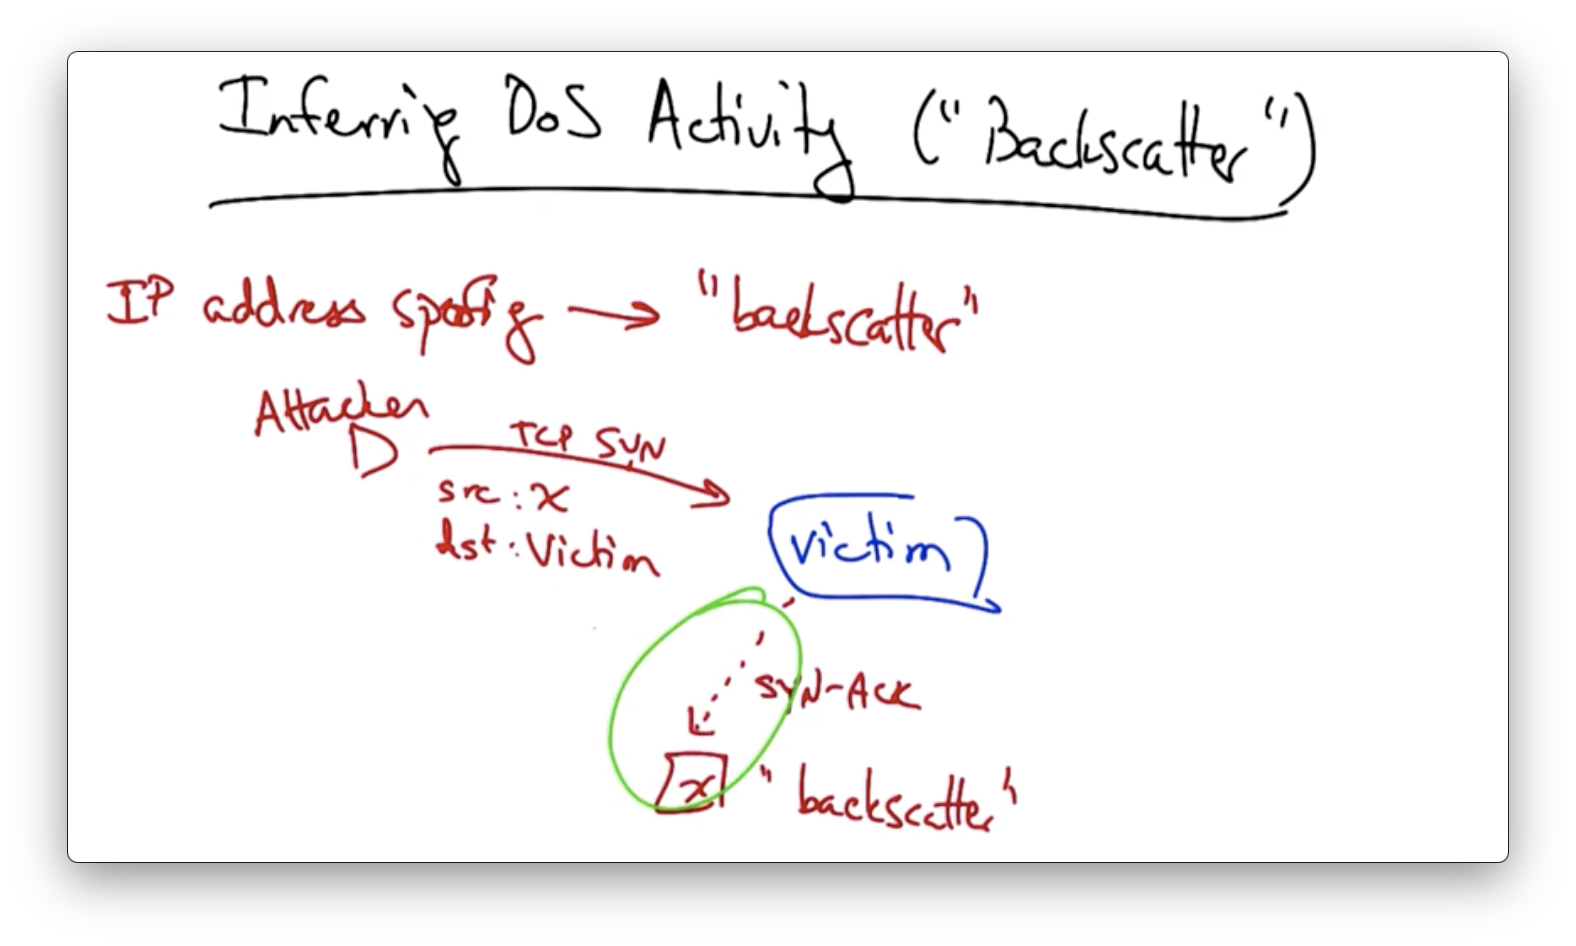 Inferring DoS Activity ("Backscatter")
IP address spoofing → "backscatter"
Attacker
TCP SYN
src: x
dst: Victim
victim
SYN-ACK
x "backscatter"